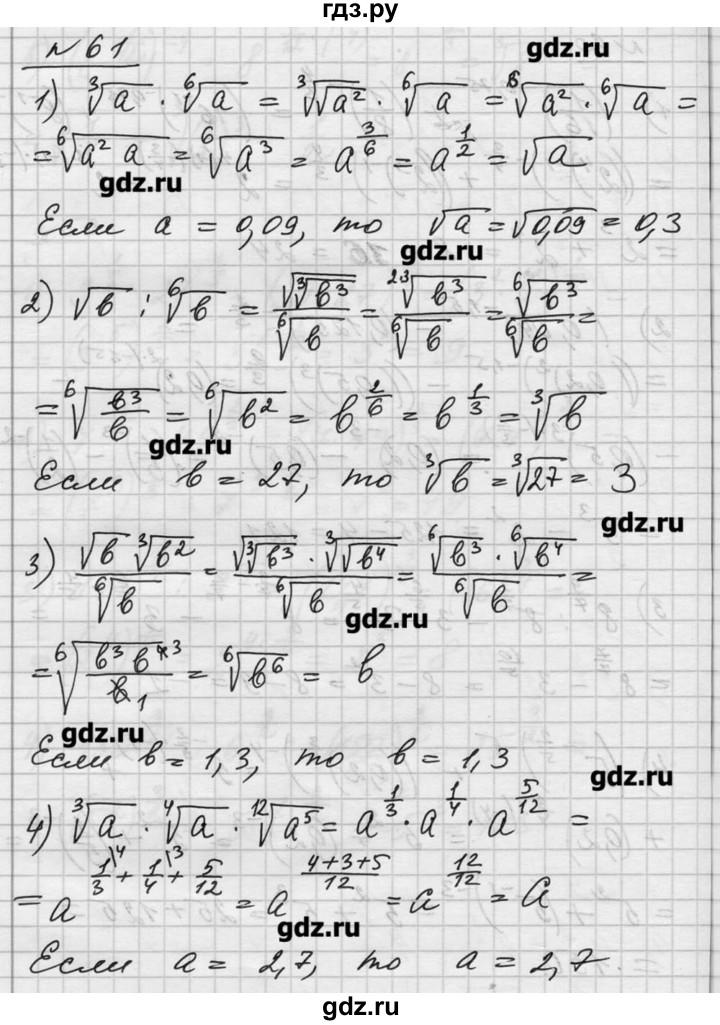 гдз.ру
№61
gdz.ru
1) ∛a · ⁶√a = ∛√a² · ⁶√a = ⁶√a² · ⁶√a =
= ⁶√(a² a) = ⁶√a³ = a^(3/6) = a^(1/2) = √a
gdz.ru
Если a = 0,09, то √a = √0,09 = 0,3
gdz.ru
2) √b : ⁶√b = √∛b³ / ⁶√b = ²³√b³ / ⁶√b = ⁶√b³ / ⁶√b =
= ⁶√(b³/b) = ⁶√b² = b^(2/6) = b^(1/3) = ∛b
gdz.ru
Если b = 27, то ∛b = ∛27 = 3
gdz.ru
3) √b ∛b² / ⁶√b = √∛b³ · ∛√b⁴ / ⁶√b = ⁶√b³ · ⁶√b⁴ / ⁶√b =
gdz.ru
= ⁶√(b³ b⁴ ³ / b 1) = ⁶√b⁶ = b
gdz.ru
Если b = 1,3, то b = 1,3
gdz.ru
4) ∛a · ⁴√a · ¹²√a⁵ = a^(1/3) · a^(1/4) · a^(5/12) =
= a^(1/3\4 + 1/4\3 + 5/12) = a^((4+3+5)/12) = a^(12/12) = a
gdz.ru
Если a = 2,7, то a = 2,7.
gdz.ru